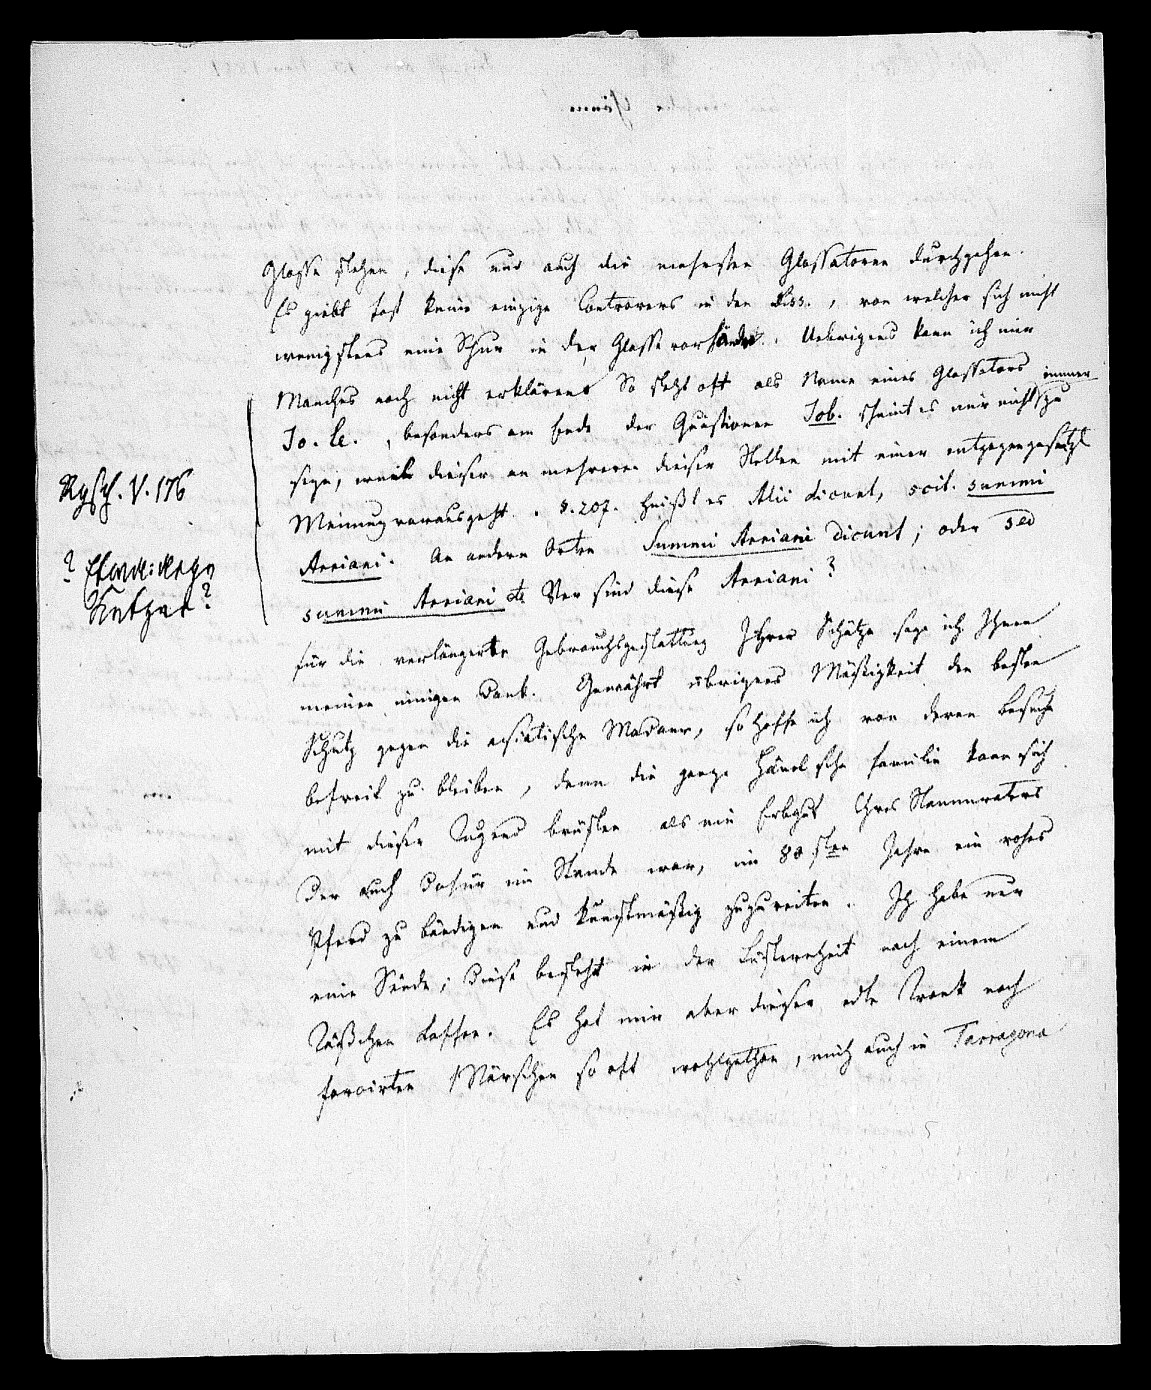 Glosse stehen, diese und auch die mehrsten Glossatoren durchgehen.
Es giebt fast keine einzige Controvers in den Diss., von welcher sich nicht
wenigstens eine Spur in der Glosse vorfände. Uebrigens kann ich mir
Manches noch nicht erklären. So steht oft als Name eines Glossators
Jo. le., besonders am Ende der Quästionen Job. scheint es mir nicht immer zu
seyn, weil dieser an mehreren dieser Stellen mit einer entgegengesetzt
Meinung vorausgeht. S. 207. heißt es Alii dicunt, scil. summi
Arriani. An andern Orten Summi Arriani dicunt; oder sed
summi Arriani etc. Wer sind diese Arriani?
Rysch. V. 176
für die verlängerte Gebrauchsgestattung Ihrer Schätze sage ich Ihnen
meinen innigen Dank. Gewährt übrigens Mäßigkeit den besten
Schutz gegen die asiatische Madame, so hoffe ich von deren Besuche
befreit zu bleiben, denn die ganze Hänelsche Familie kann sich
mit dieser Tugend brüsten als ein Erbgut Ihres Stammvaters
der auch dafür im Stande war, im 80sten Jahre ein rohes
Pferd zu bändigen und kunstmäßig zuzureiten. Ich habe nur
eine Sünde; diese besteht in der Lüsternheit nach einem
Täßchen Kaffee. Es hat mir aber dieser edle Trank nach
forcirten Märschen so oft wohlgethan, mich auch in Tarragona